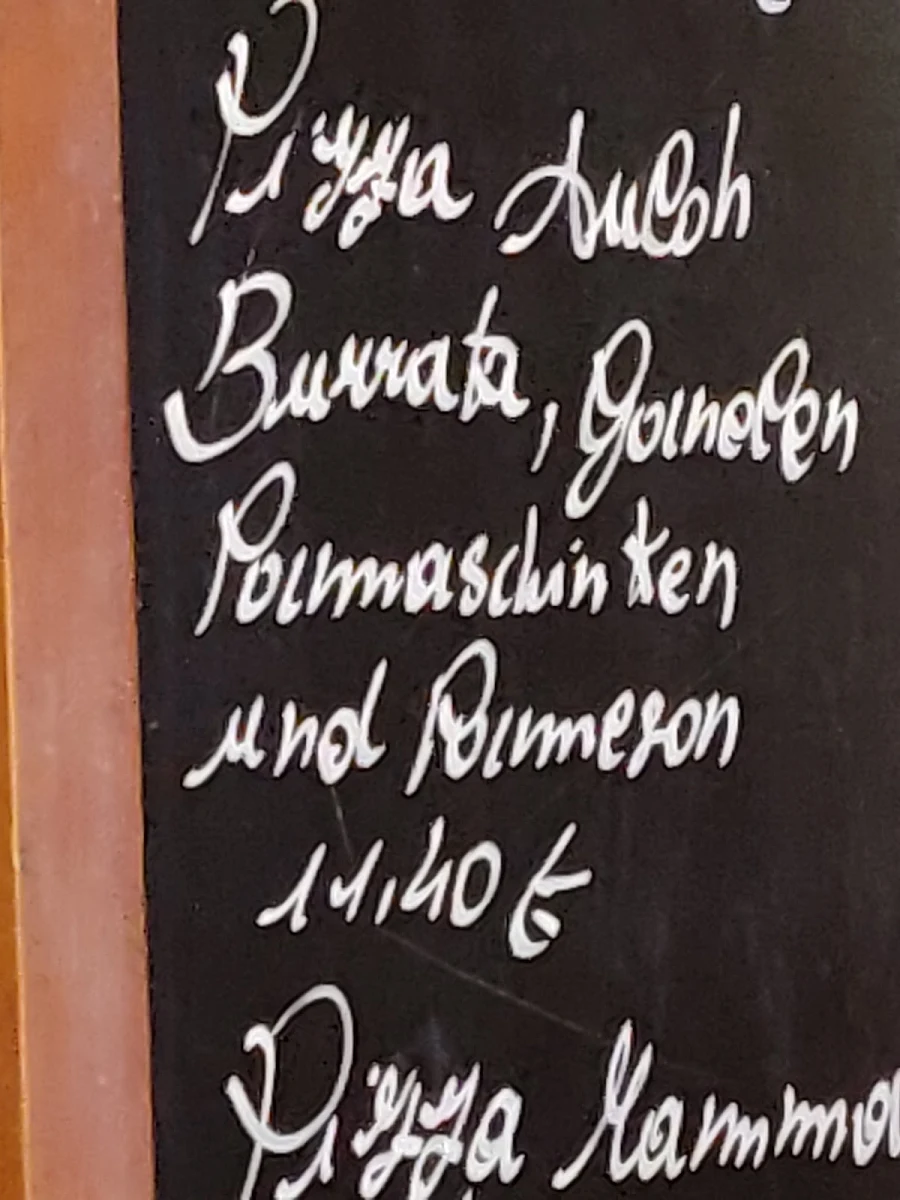 Pizza
Burrata, Garnelen
Parmaschinken
und Parmesan
11,40 €
Pizza Mamma